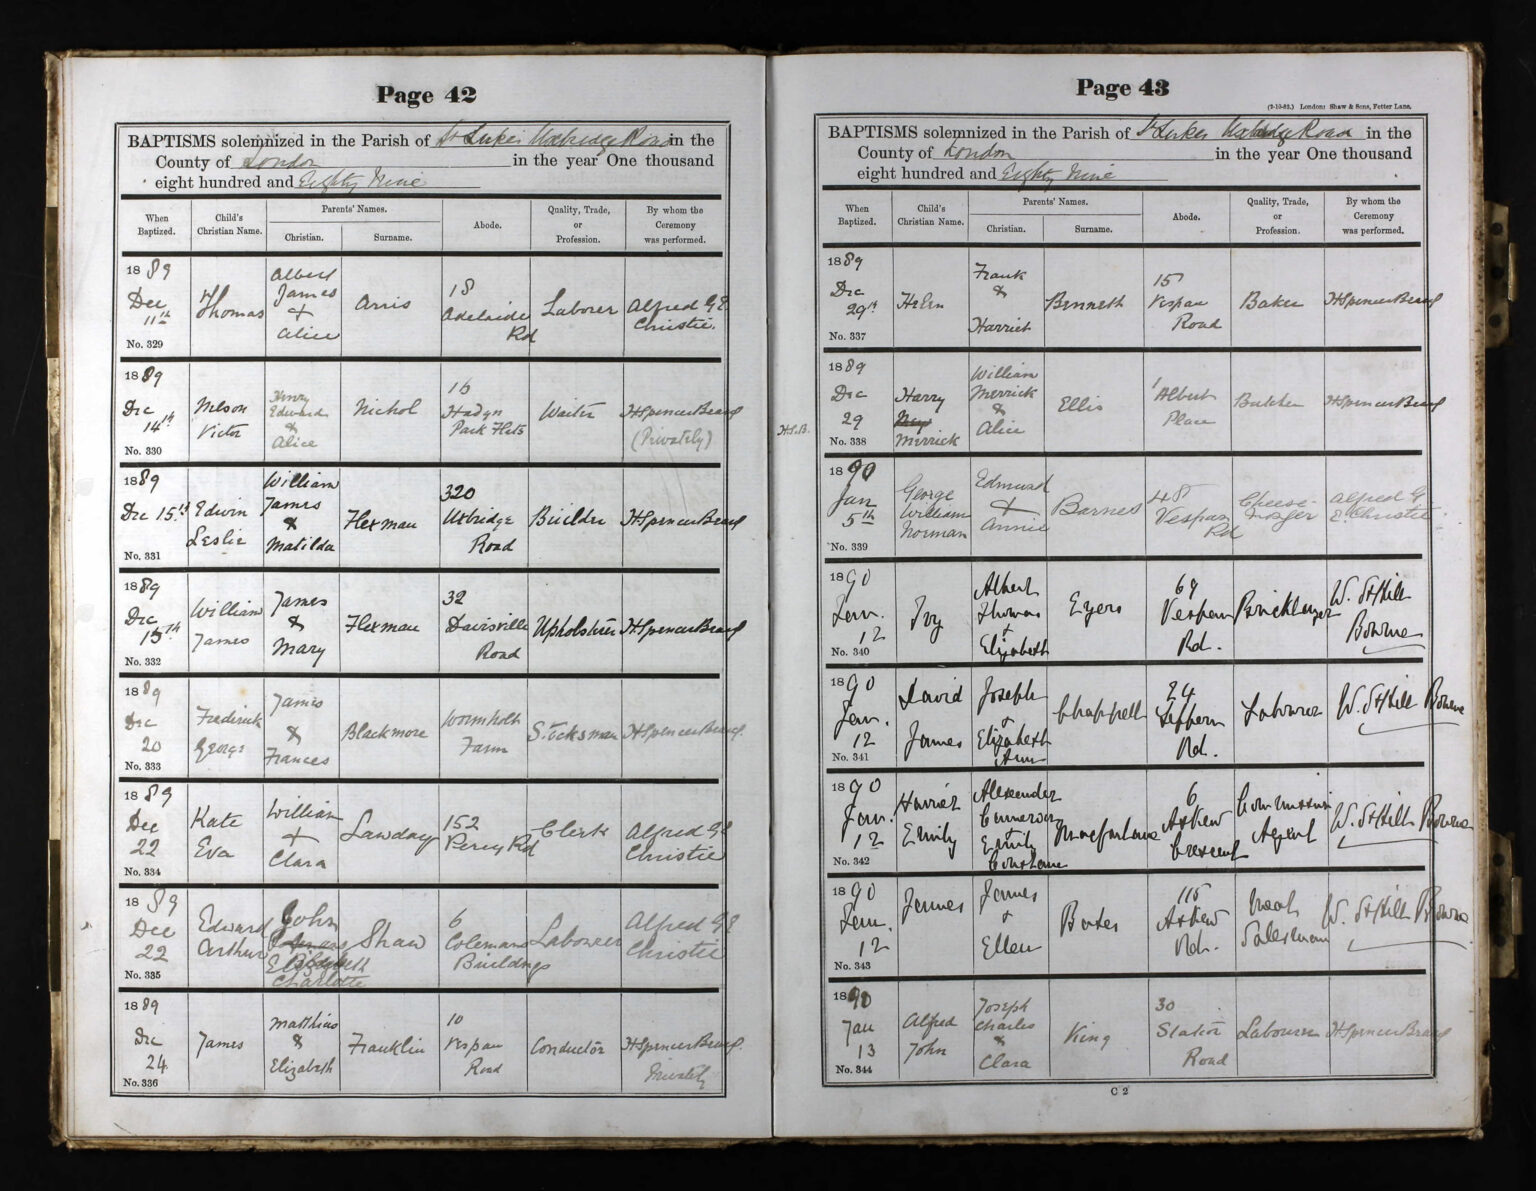 Page 42
BAPTISMS solemnized in the Parish of St Lukes Uxbridge Road in the
County of London in the year One thousand
eight hundred and Eighty Nine
When Baptized. Child's Christian Name. Parents' Names. Christian. Surname. Abode. Quality, Trade, or Profession. By whom the Ceremony was performed.
1889 Dec 11th No. 329
Thomas
Albert James + Alice
Arris
18 Adelaide Rd
Laborer
Alfred G E Christie.
1889 Dec 14th No. 330
Nelson Victor
Henry Edward & Alice
Nichol
16 Hadyn Park Flats
Waiter
H Spencer
(Privately)
1889 Dec 15th No. 331
Edwin Leslie
William James & Matilda
Flexman
320 Uxbridge Road
Builder
H Spencer
1889 Dec 15th No. 332
William James
James & Mary
Flexman
32 Davisville Road
Upholsterer
H Spencer
1889 Dec 20 No. 333
Frederick George
James & Frances
Blackmore
Wormholt Farm
Stocksman
H Spencer
1889 Dec 22 No. 334
Kate Eva
William + Clara
Lawday
152 Percy Rd
Clerk
Alfred G E Christie
1889 Dec 22 No. 335
Edward Arthur
John
Charlotte
Shaw
6 Colemans Buildings
Labourer
Alfred G E Christie
1889 Dec 24 No. 336
James
Matthias & Elizabeth
Franklin
10 Vespan Road
Conductor
H Spencer
Privately
Page 43
(2-10-82.) London: Shaw & Sons, Fetter Lane.
BAPTISMS solemnized in the Parish of St Lukes Uxbridge Road in the
County of London in the year One thousand
eight hundred and Eighty Nine
When Baptized. Child's Christian Name. Parents' Names. Christian. Surname. Abode. Quality, Trade, or Profession. By whom the Ceremony was performed.
1889 Dec 29th No. 337
Helen
Frank & Harriet
Bennett
15 Vespan Road
Baker
H Spencer
H.S.B.
1889 Dec 29 No. 338
Harry
Merrick
William Merrick & Alice
Ellis
1 Albert Place
Butcher
H Spencer
1890 Jan 5th No. 339
George William Norman
Edmund + Annie
Barnes
48 Vespan Rd
Cheesemonger
Alfred G E. Christie
1890 Jan. 12 No. 340
Ivy
Albert Thomas + Elizabeth
Eyers
64 Vespan Rd.
Bricklayer
W. St Hill Bourne
1890 Jan. 12 No. 341
David James
Joseph + Elizabeth Ann
Chappell
24
Rd.
Labourer
W. St Hill Bourne
1890 Jan. 12 No. 342
Harriet Emily
Alexander Cameron Emily Constance
Macfarlane
6 Askew Crescent
Commission Agent
W. St Hill Bourne
1890 Jan. 12 No. 343
James
James + Ellen
Bates
115 Askew Rd.
Meat Salesman
W. St Hill Bourne
1890 Jan 13 No. 344
Alfred John
Joseph Charles & Clara
King
30 Station Road
Labourer
H Spencer
C 2